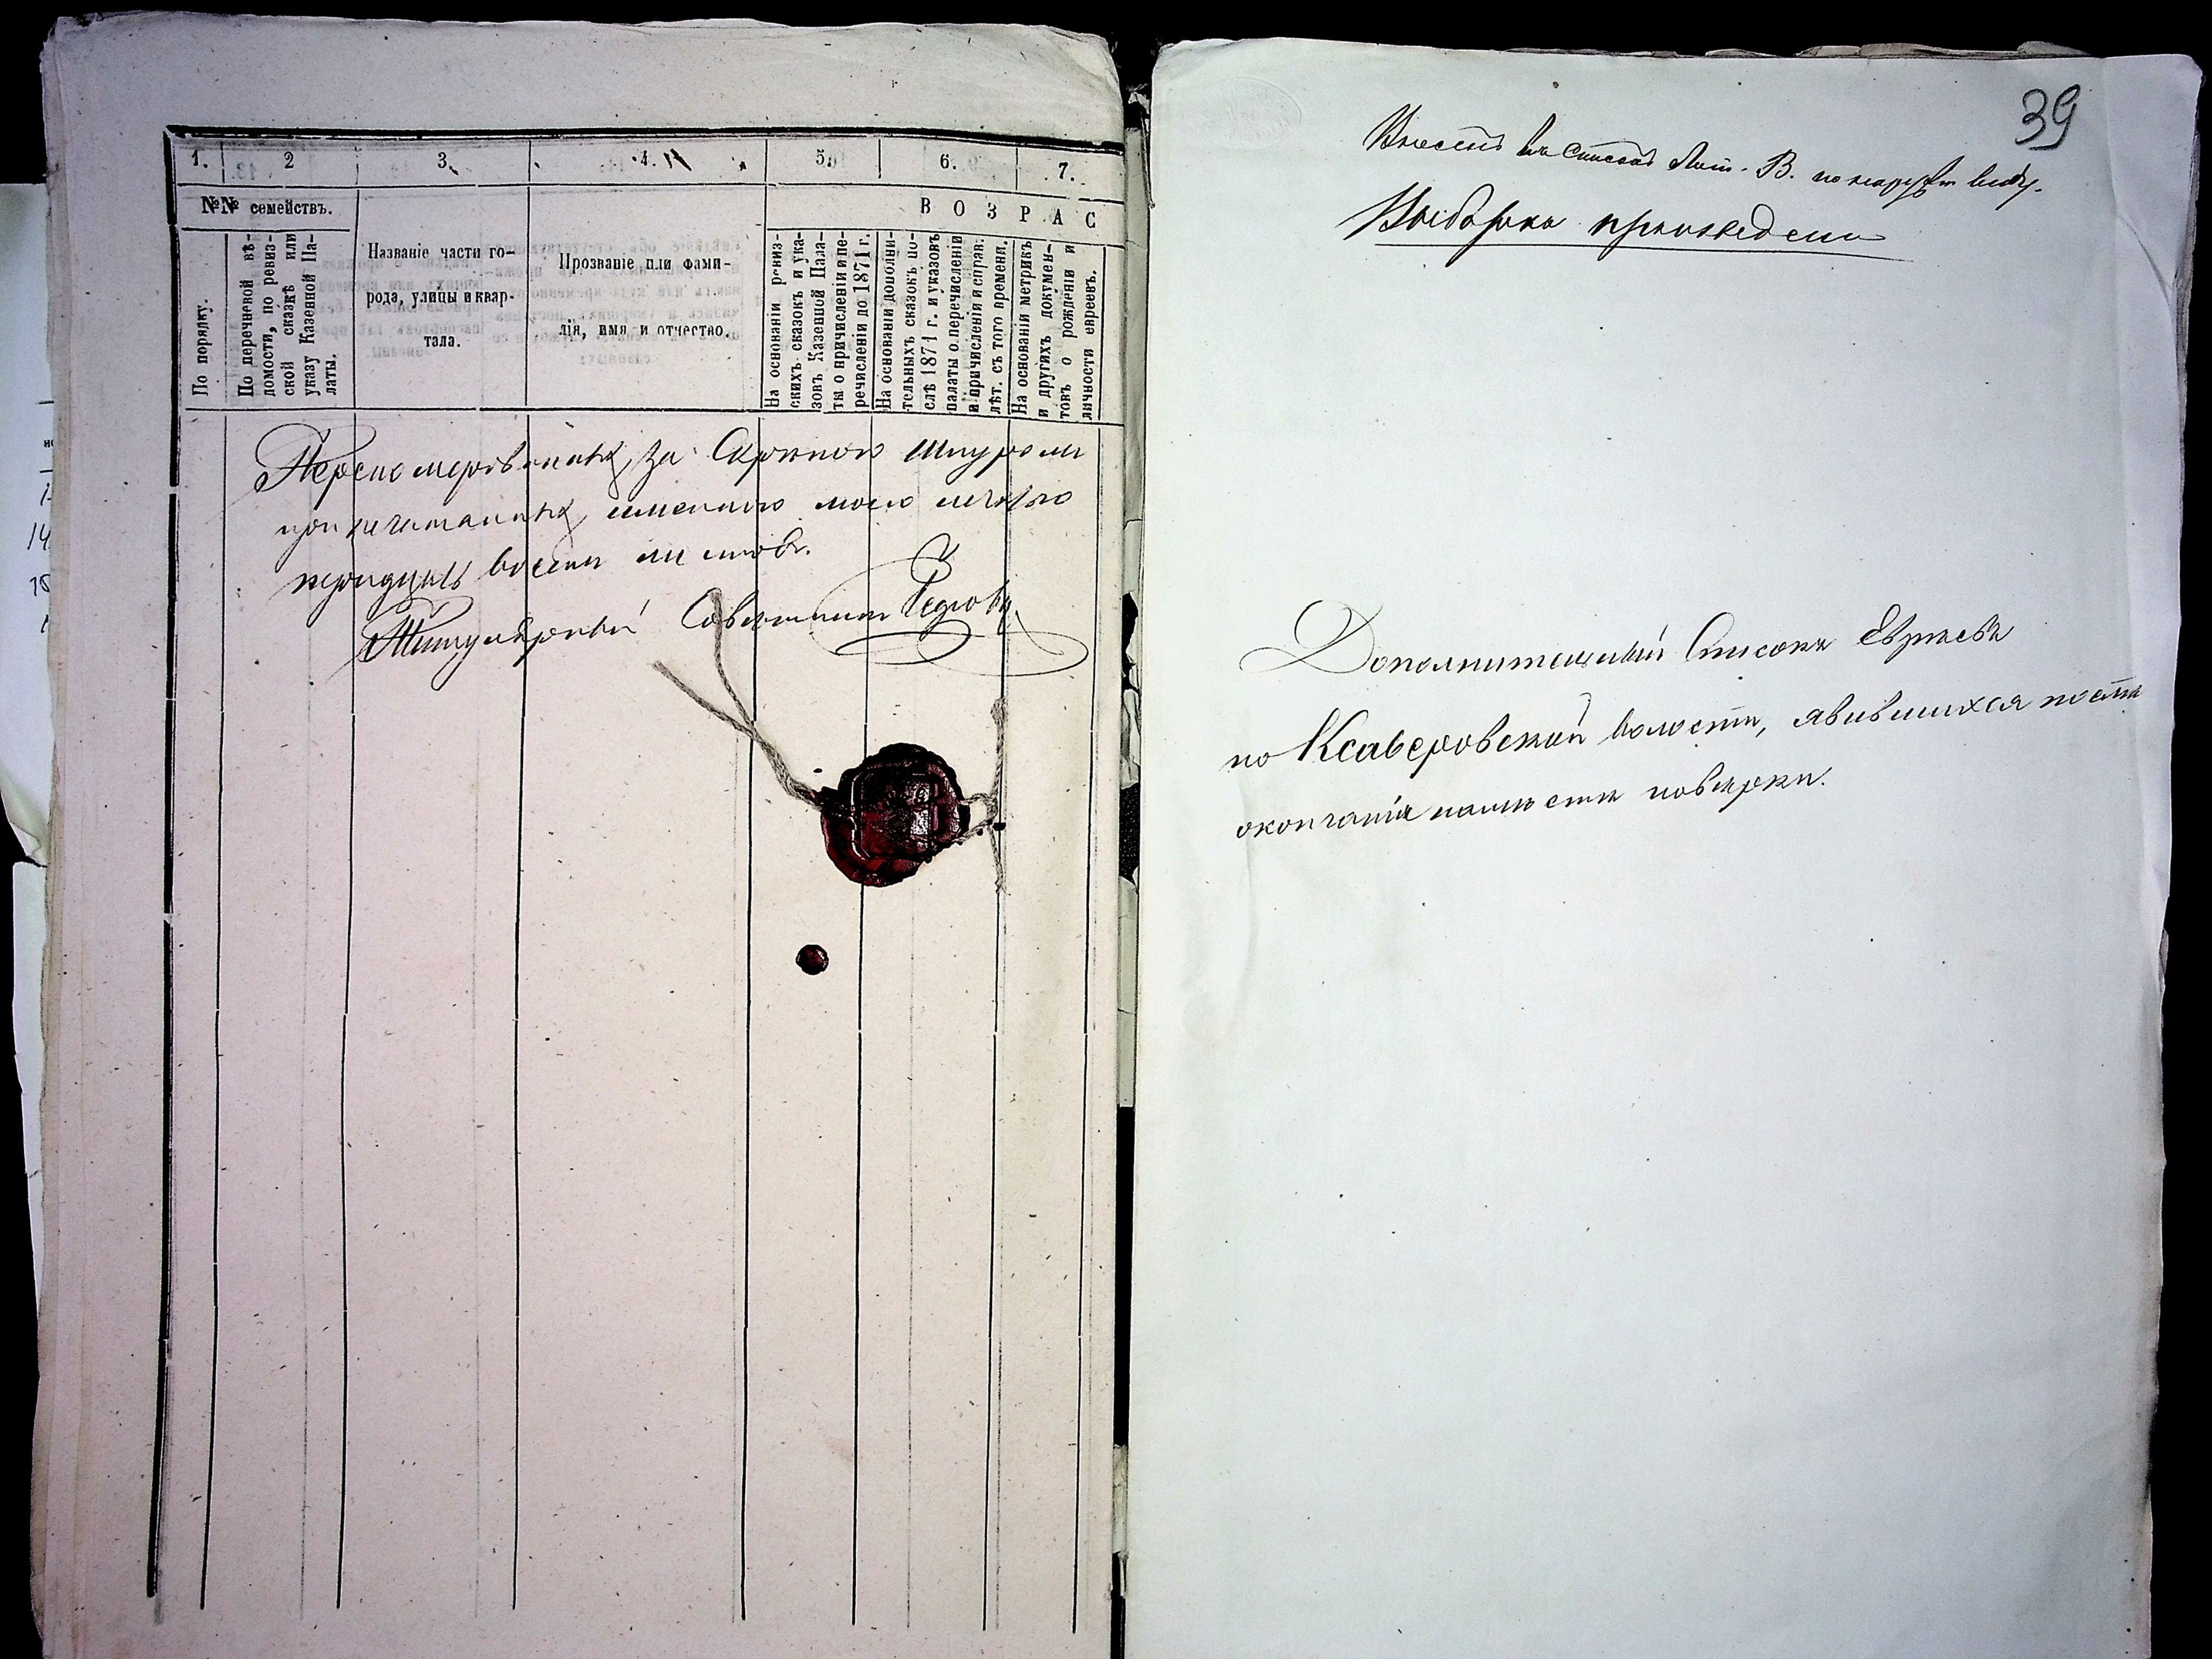 1. 2 3. 4. 5. 6. 7.
№№ семействъ.
ВОЗРАС
По порядку.
По перечневой вѣ-
домости, по ревиз-
ской сказкѣ или
указу Казенной Па-
латы.
Названіе части го-
рода, улицы и квар-
тала.
Прозваніе или фами-
лія, имя и отчество.
На основаніи ревиз-
скихъ сказокъ и ука-
зовъ Казенной Пала-
ты о причисленіи и пе-
речисленіи до 1871 г.
На основаніи дополни-
тельныхъ сказокъ по-
слѣ 1871 г. и указовъ
палаты о перечисленіи
и причисленіи и справ.
лѣт. съ того времени.
На основаніи метрикъ
и другихъ докумен-
товъ о рожденіи и
личности евреевъ.
Перенумерованныхъ, за скрѣпою шнуромъ
припечатанныхъ именною моею печатью
тридцать восемь листовъ.
Титулярный Совѣтникъ
39
въ списокъ Лит. В.
Выборка произведена
Дополнительный Списокъ Евреевъ
по Ксаверовской волости, явившихся послѣ
окончанія на мѣстѣ повѣрки.